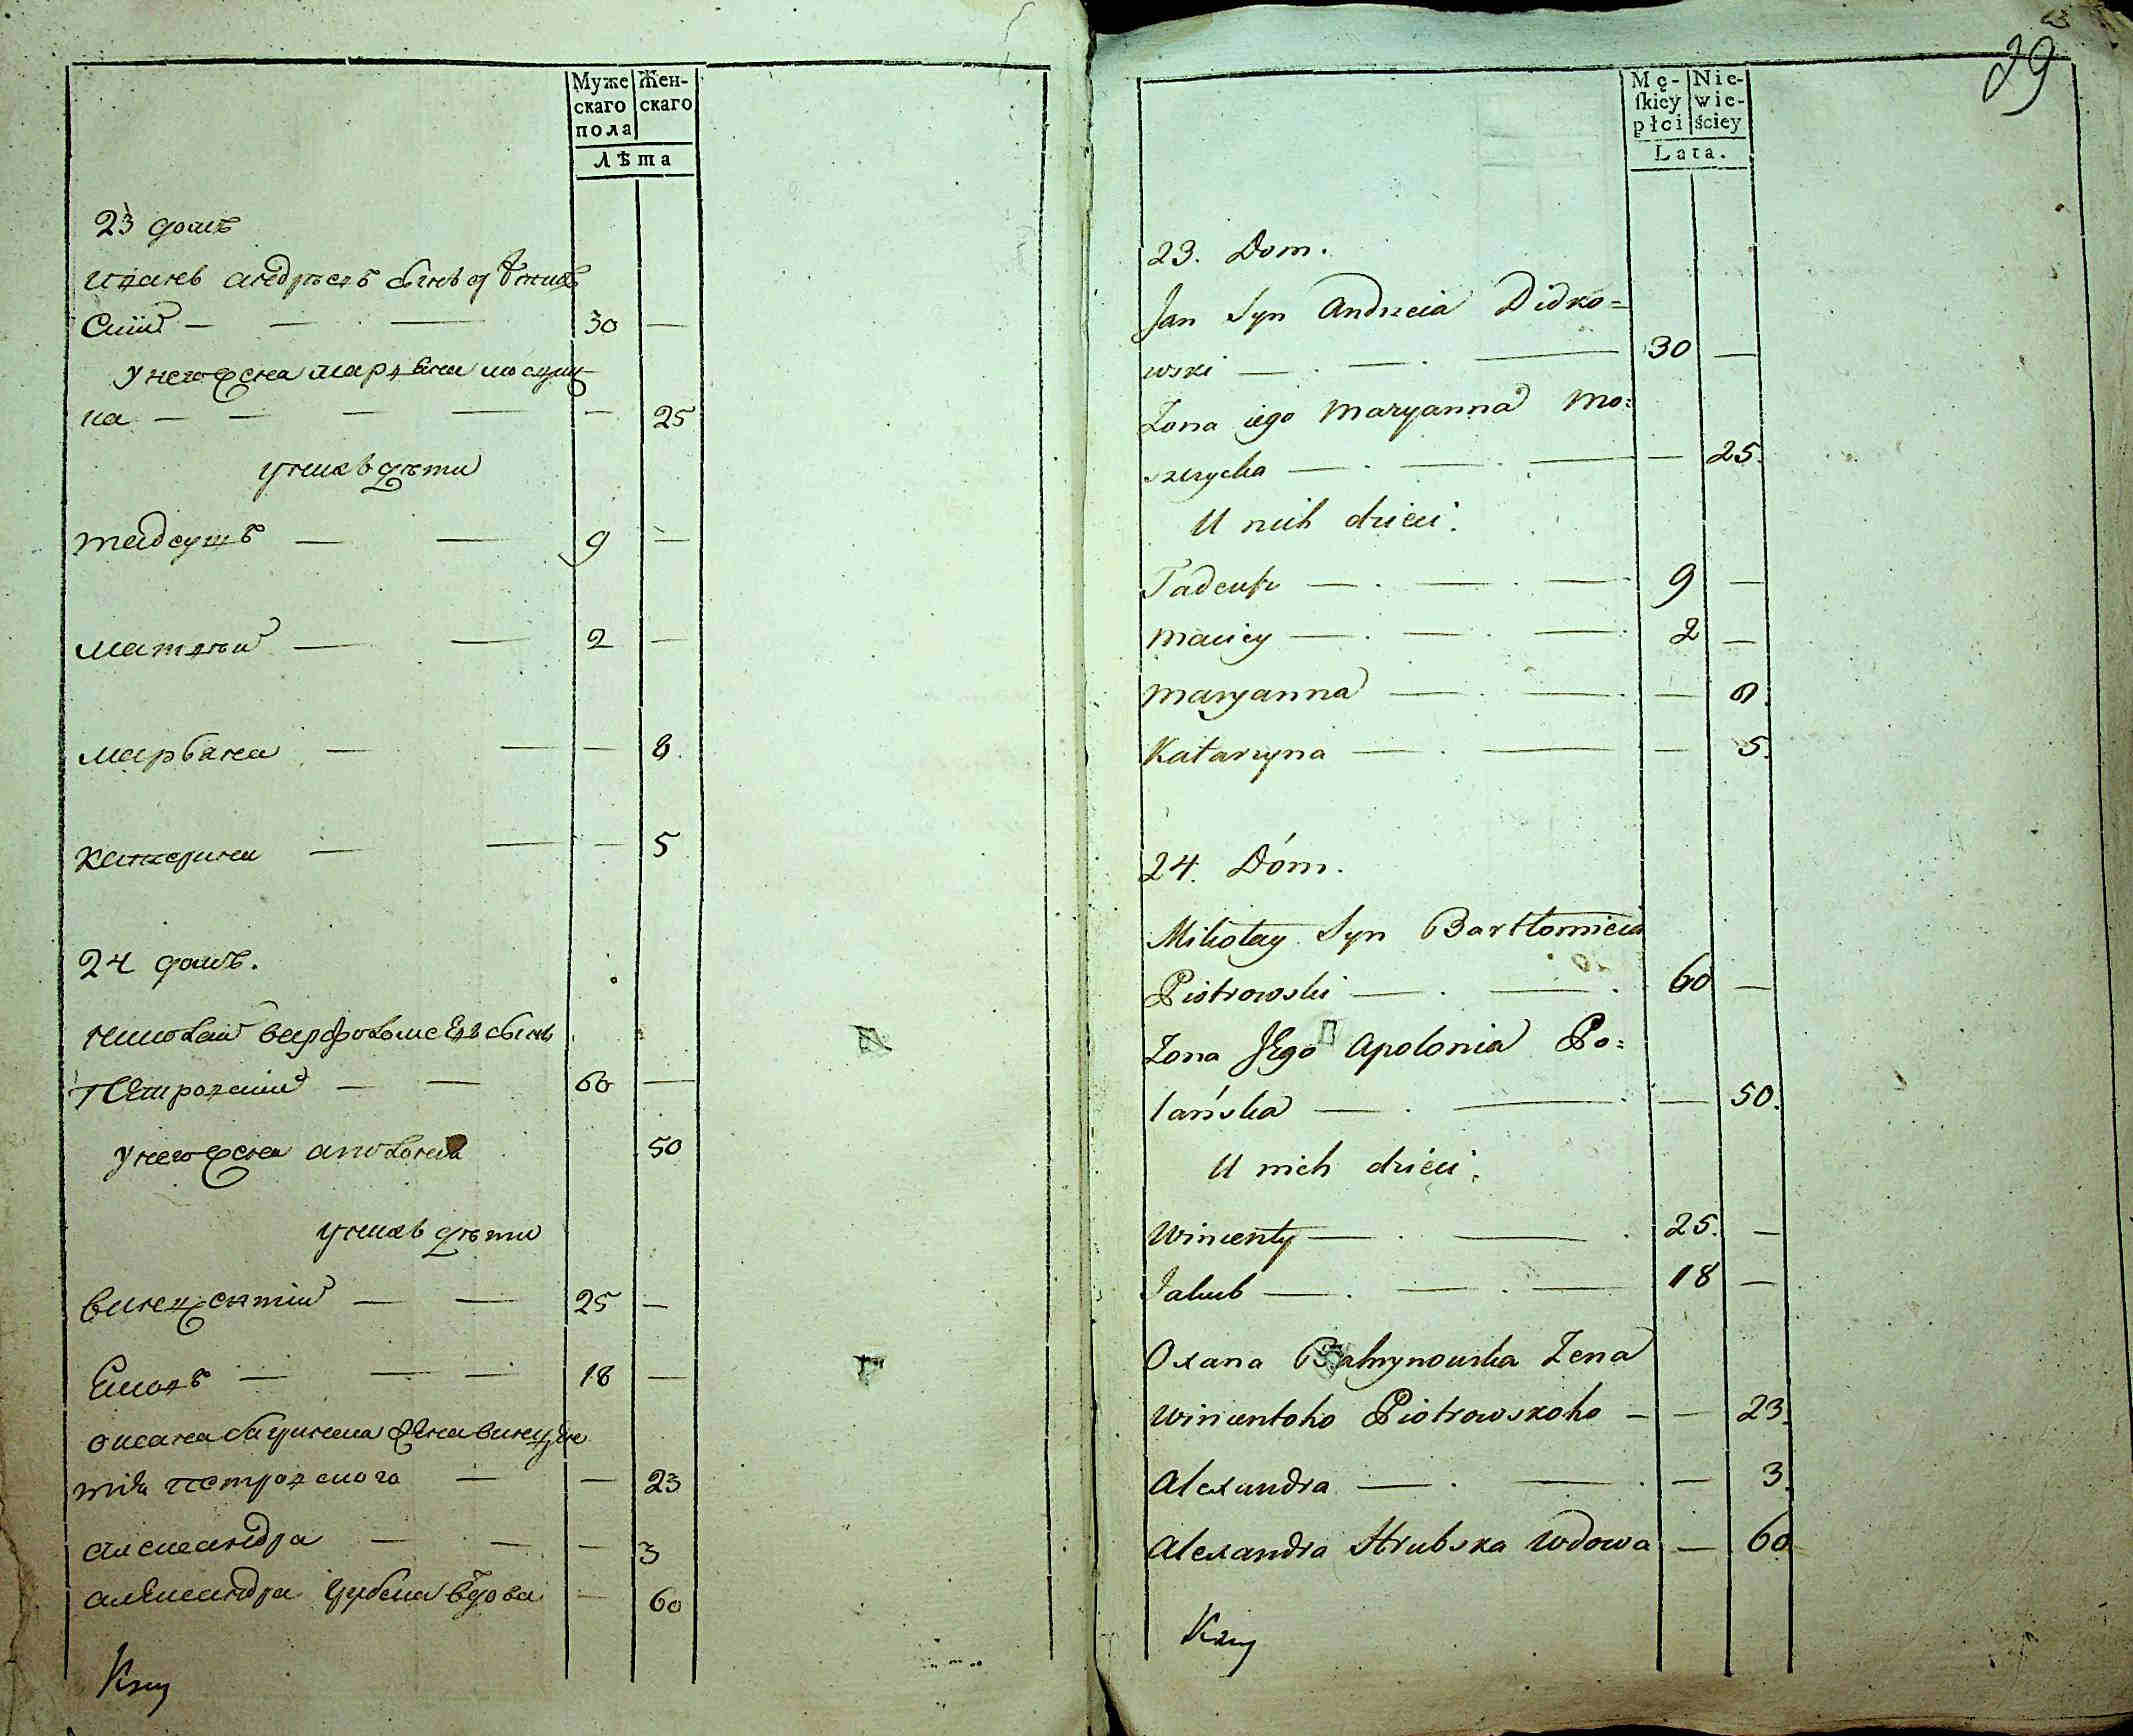 Муже
скаго
пола
Жен-
скаго
Лѣта
23 домъ
иванъ андрѣевъ сынъ
скiй — — — 30 —
у него жена марьяна
ка — — — — — 25
у нихъ дѣти
тадеушъ — — 9 —
матвѣй — — 2 —
марьяна — — — 8.
катерина — — — 5
24 домъ.
николай варфоломеевъ сынъ
Петровскiй — — 60 —
у него жена аполонiя 50
у нихъ дѣти
винцентiй — — 25 —
Яковъ — — — 18 —
оксана жена винцен
тiя петровского — — 23
александра — — — 3
александра вдова — 60
29
Mę-
ſkiey
płci
Nie-
wie-
ściey
Lata.
23. Dom.
Jan Syn Andrzeia Didko=
wski — . — . — 30 —
Żona iego Maryanna Mo=
szczycka — . — . — — 25.
U nich dzieci.
Tadeuſz — . — . — 9 —
Maciey — . — . — 2 —
Maryanna — . — . — 8.
Katarzyna — . — — 5.
24. Dóm.
Mikołay Syn Bartłomieia
Piotrowski — . — . 60 —
Zona JEgo Apolonia Po=
lańska — . — . — 50.
U nich dzieci.
Wincenty — . — . 25. —
Jakub — . — . — 18 —
Oxana Zena
Wincentoho Piotrowskoho — — 23.
Alexandra — . — . — 3.
Alexandra Hrubska Wdowa — 60